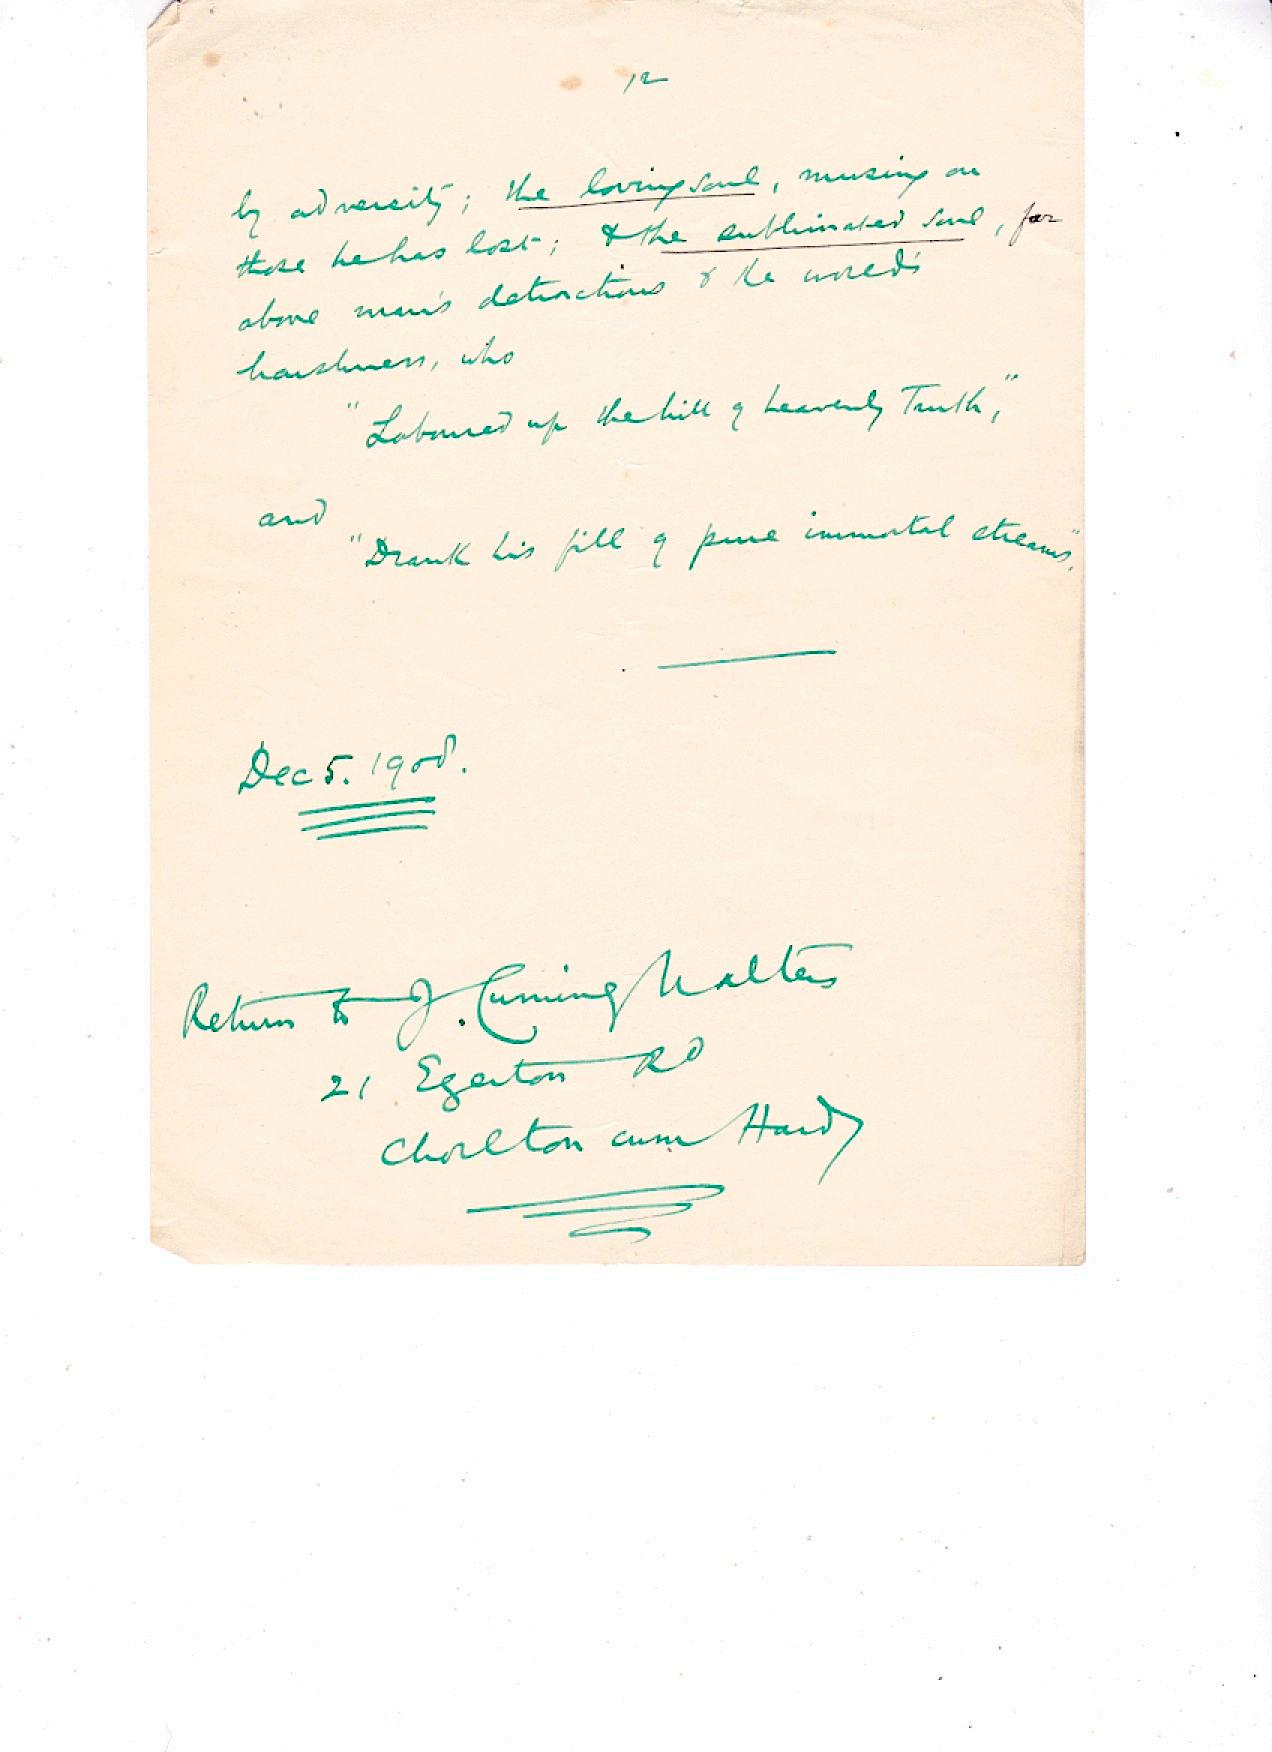 12
by adversity; the loving soul, musing on
those he has lost; & the sublimated soul, far
above man's detractions & the world's
harshness, who
"Laboured up the hill of heavenly Truth,"
and
"Drank his fill of pure immortal streams".
Dec 5. 1908.
Return to J. Cuming Walters
21 Egerton Rd
Chorlton cum Hardy